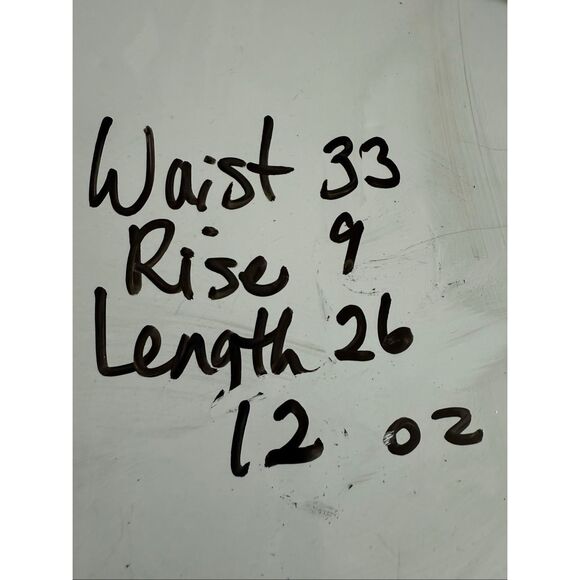 Waist 33
Rise 9
Length 26
12 oz